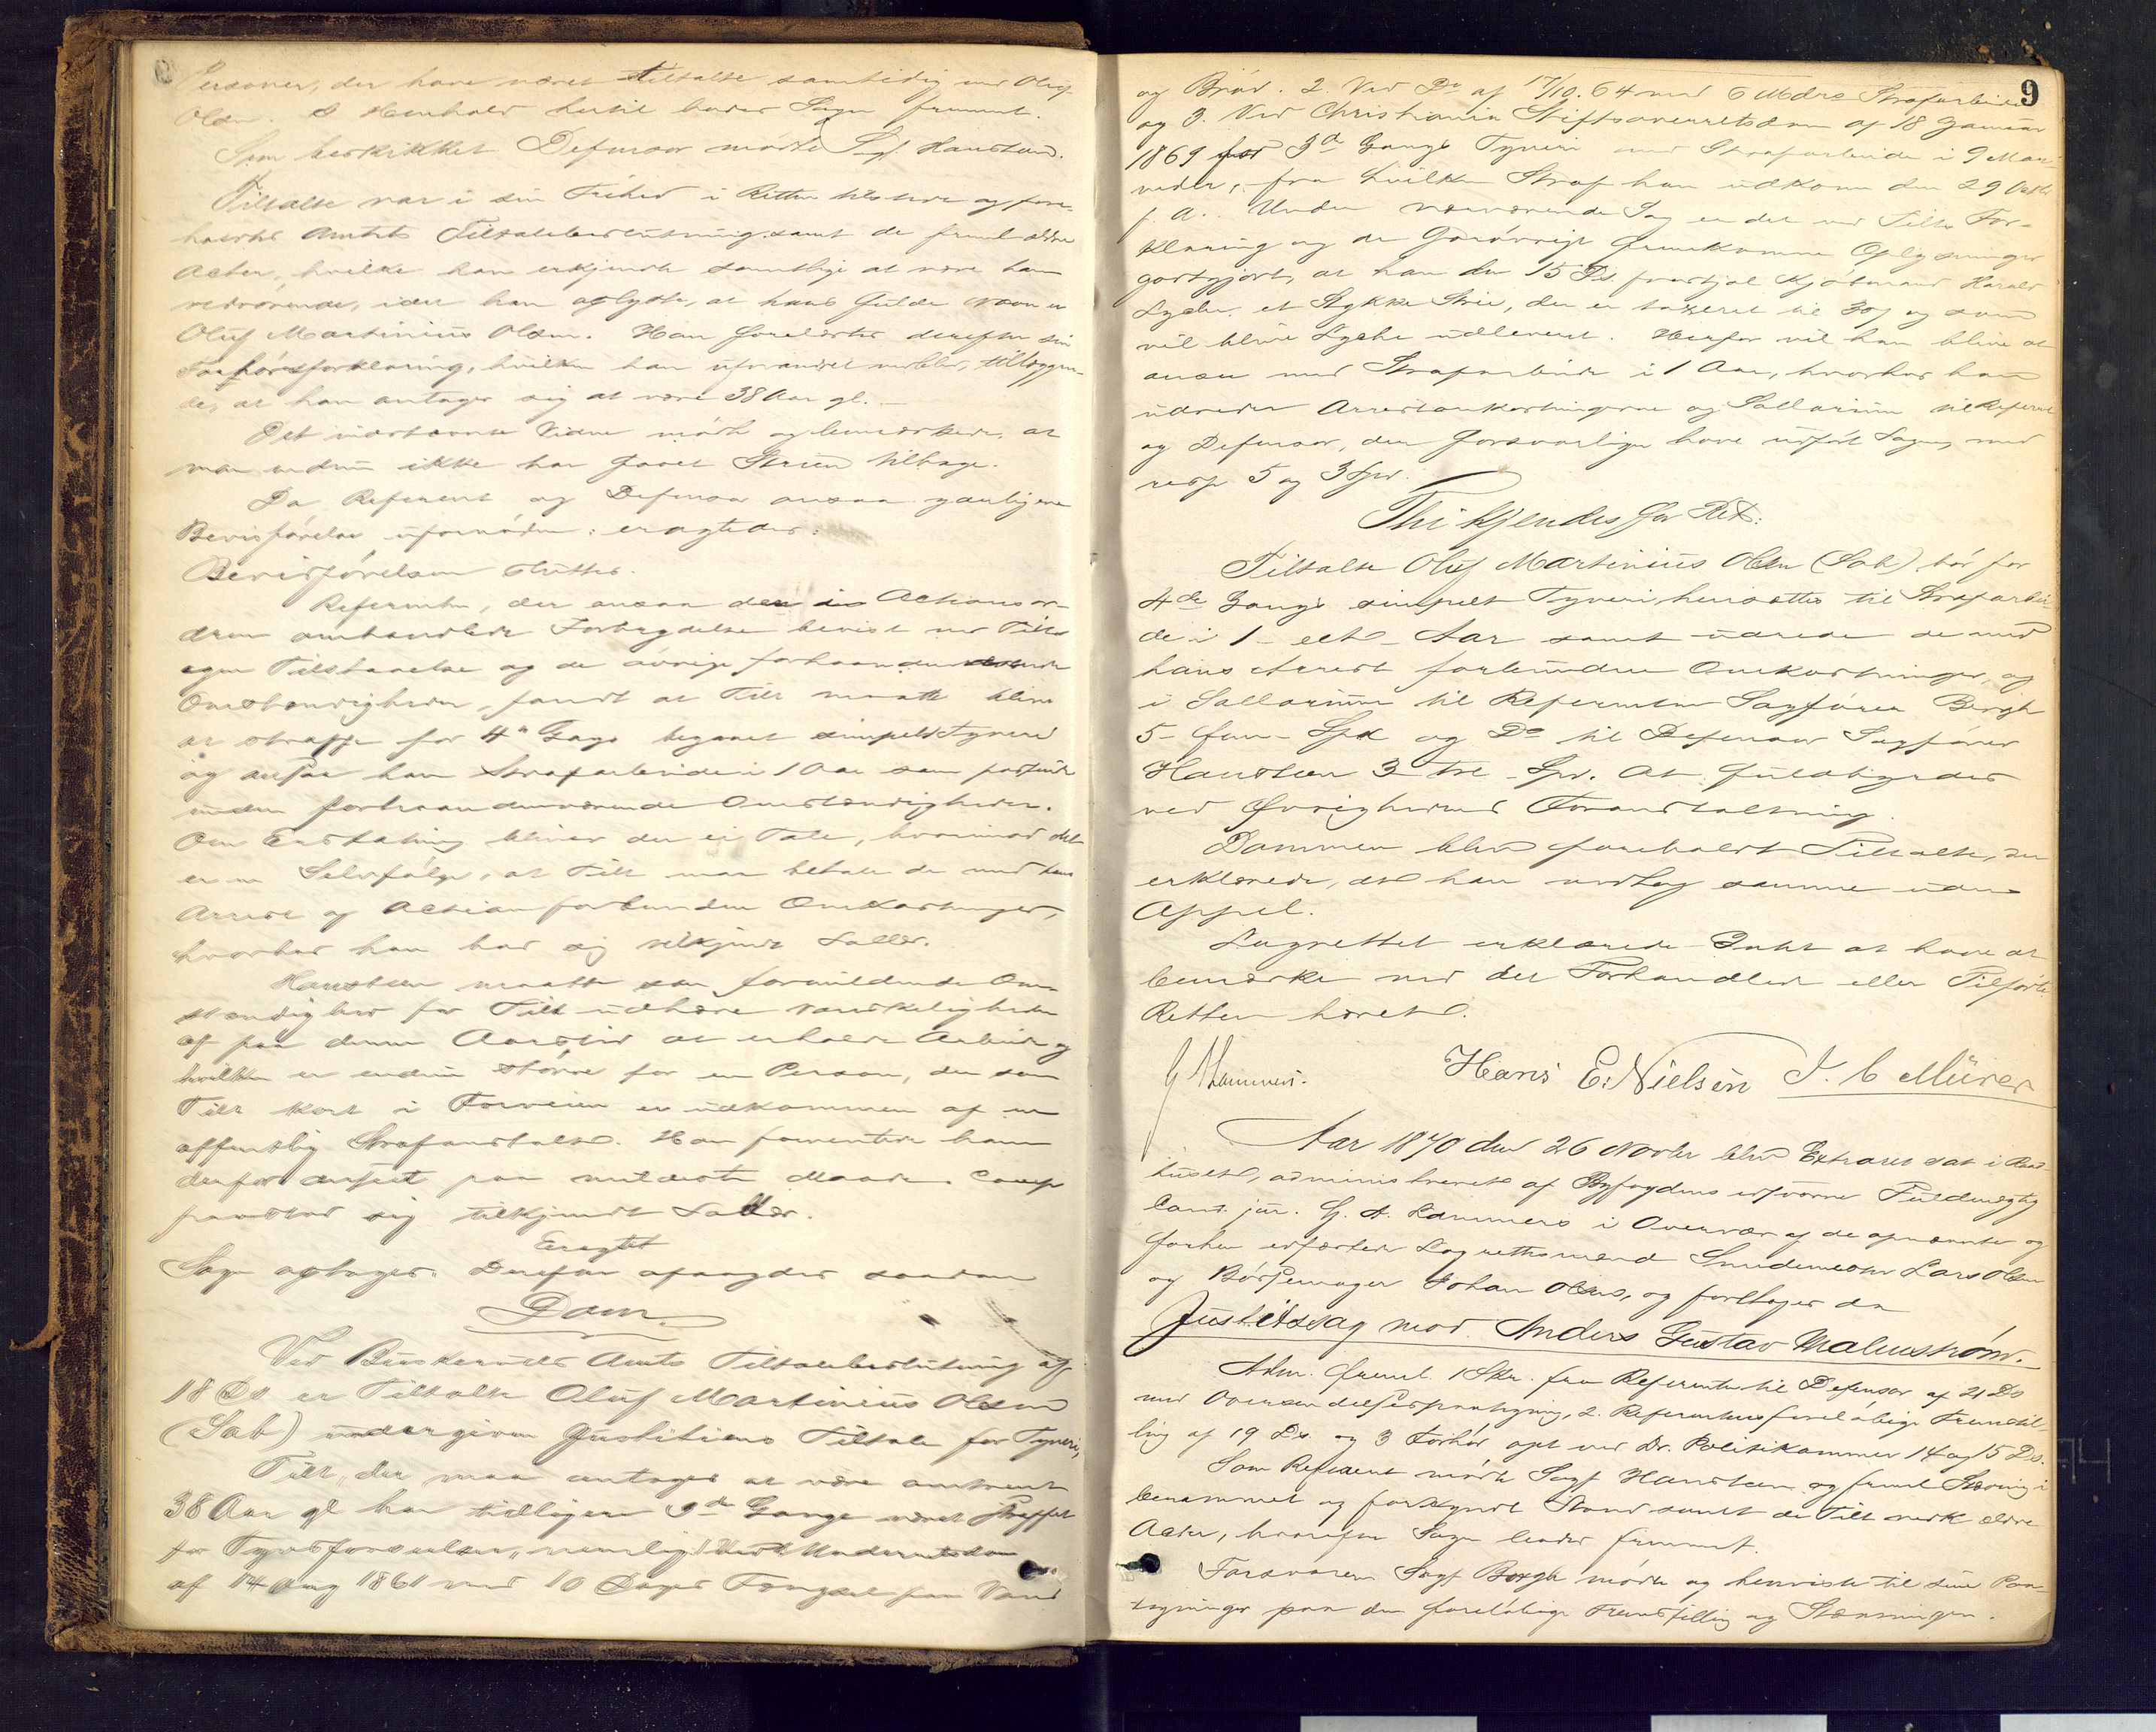 Personer, der have været tiltalte samtidig med Oluf
Olsen. I Henhold hertil lader Sagen fremmet.
Som beskikket Defensor mødte Sagf. Hansteen.
Tiltalte var i sin Frihed i Retten tilstede og fore-
holdtes Amtets Tiltalebeslutning samt de freml ældre
Acter, hvilke han erkjendte samtlige at være ham
vedrørende, idet han oplyste, at hans fulde Navn er
Oluf Martinius Olsen. Han forelæstes derefter sin
Forhørsforklaring, hvilken han uforandret vedblev, tillæggen-
de, at han antager sig at være 38 Aar gl.
Det indstævnte Vidne mødte og bemærkede, at
man endnu ikke har faaet Strien tilbage.
Da Referent og Defensor ansaa yderligere
Bevisførelse ufornøden: eragtedes:
Bevisførelsen sluttes.
Referenten, der ansaa den i Actionsor-
dren omhandlede Forbrydelse bevist ved Tilts
egen Tilstaaelse og de øvrige forhaanden
Omstændigheder, fandt at Tilt maatte blive
at straffe for 4de Gang begaaet simpelt Tyveri
og ansaa han Strafarbeide i 1 Aar som passende
under forhaandenværende Omstændigheder.
Om Erstatning bliver der ei Tale, hvorimod det
er en Selvfølge, at Tilt maa betale de med hans
Arrest og Action forbundne Omkostninger,
hvorhos han bad sig tilkjendt Salær.
Hansteen maatte som formildende Om-
stændighed for Tilt udhæve Vanskeligheden
af paa denne Aarstid at erholde Arbeide og
hvilken er endnu større for en Person, der som
Tilt kort i Forveien er udkommen af en
offentlig Strafanstalt. Han forventede ham
derfor anseet paa mildeste Maade.
paastod sig tilkjendt Salær.
Eragtet
Sagen optages. Derefter afsagdes saadan
Dom.
Ved Buskeruds Amts Tiltalebeslutning af
18 Ds er Tiltalte Oluf Martinius Olsen
(Sab) undergiven Justitiens Tiltale for Tyveri,
Tilt, der maa antages at være omtrent
38 Aar gl har tidligere 3de Gange været straffet
for Tyvsforseelser, nemlig 1. Ved Underretsdom
af 14 Aug 1861 med 10 Dages Fængsel paa Vand
9
og Brød. 2. Ved Do af 17/10.64 med 6 Mdrs Strafarbeide
og 3. Ved Christiania Stiftsoverretsdom af 18 Januar
1869 for 3die Gangs Tyveri med Strafarbeide i 9 Maa-
neder, fra hvilken Straf han udkom den 29 Oktbr
f. A. Under nærværende Sag er det ved Tilts For-
klaring og de forøvrigt fremkomne Oplysninger
godtgjort, at han den 15 Ds. frastjal Kjøbmand Harald
Lyche et Stykke Strie, der er taxeret til 30 s og som
vil blive Lyche udleveret. Herfor vil han blive at
ansee med Strafarbeide i 1 Aar, hvorhos han
udreder Arrestomkostningerne og Sallarium til Referent
og Defensor, der forsvarligen have udført Sagen, med
resp 5 og 3 Spd.
Thi kjendes for Ret:
Tiltalte Oluf Martinius Olsen (Sab) bør for
4de Gangs simpelt Tyveri hensættes til Strafarbei-
de i 1 - et - Aar samt udrede de med
hans Arrest forbundne Omkostninger og
i Sallarium til Referenten Sagfører Borgh
5 - fem - Spd og Do til Defensor Sagfører
Hansteen 3 - tre - Spd. At fuldbyrdes
ved Øvrighedens Foranstaltning.
Dommen blev foreholdt Tiltalte, der
erklærede, at han vedtog samme uden
Appel.
Lagrettet erklærede Intet at have at
bemærke ved det Forhandlede eller Tilførte
Retten hævet.
G. A. Lammers. Hans E. Nielsen J. C. Mürer
Aar 1870 den 26 Novbr blev Extraret sat i Raad-
huset, administreret af Byfogdens edsvorne Fuldmægtig
Cand. jur. G. A. Lammers i Overvær af de opnævnte og
forhen edfæstede Lagrettesmænd Smedemester Lars Olsen
og Bøssemager Johan Olsen, og foretoges da
Justitssag mod Anders Gustav Malmstrøm.
Adm. freml. 1 Skr. fra Referenten til Defensor af 21 Ds
med Oversendelsespaategning, 2. Referentens foreløbige Fremstil-
ling af 19 Ds. og 3 Forhør opt ved Dr. Politikammer 14 og 15 Ds.
Som Referent mødte Sagf Hansteen og freml Stævning i
benammet og forkyndt Stand samt de Tilt vedk ældre
Acter, hvorefter Sagen lader fremmet.
Forsvareren Sagf Borgh mødte og henviste til sine Paa-
tegninger paa den foreløbige Fremstilling og Stævningen.